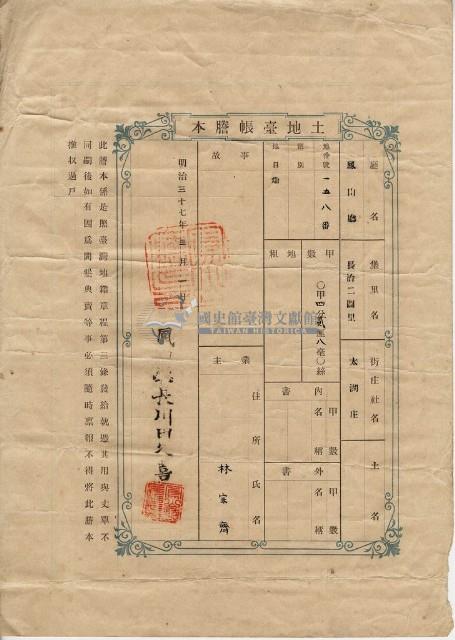 土地臺帳謄本
廳名
鳳山廳
堡里名
長治二圖里
街庄社名
太湖庄
土名
地番號
一五八番
類別
地目
畑
甲數
〇甲四分貳厘八毫〇絲
地租
內書
甲數
名稱
外書
甲數
名稱
事故
業主
住所氏名
林家齊
明治三十七年三月一日
鳳山廳長川田久喜
此謄本係是照臺灣地籍章程第三條發給就過其用與丈單不
同嗣後如有因為開墾典賣等事必須隨時稟報不得將此謄本
撫収過戶
國史館臺灣文獻館
TAIWAN HISTORICA